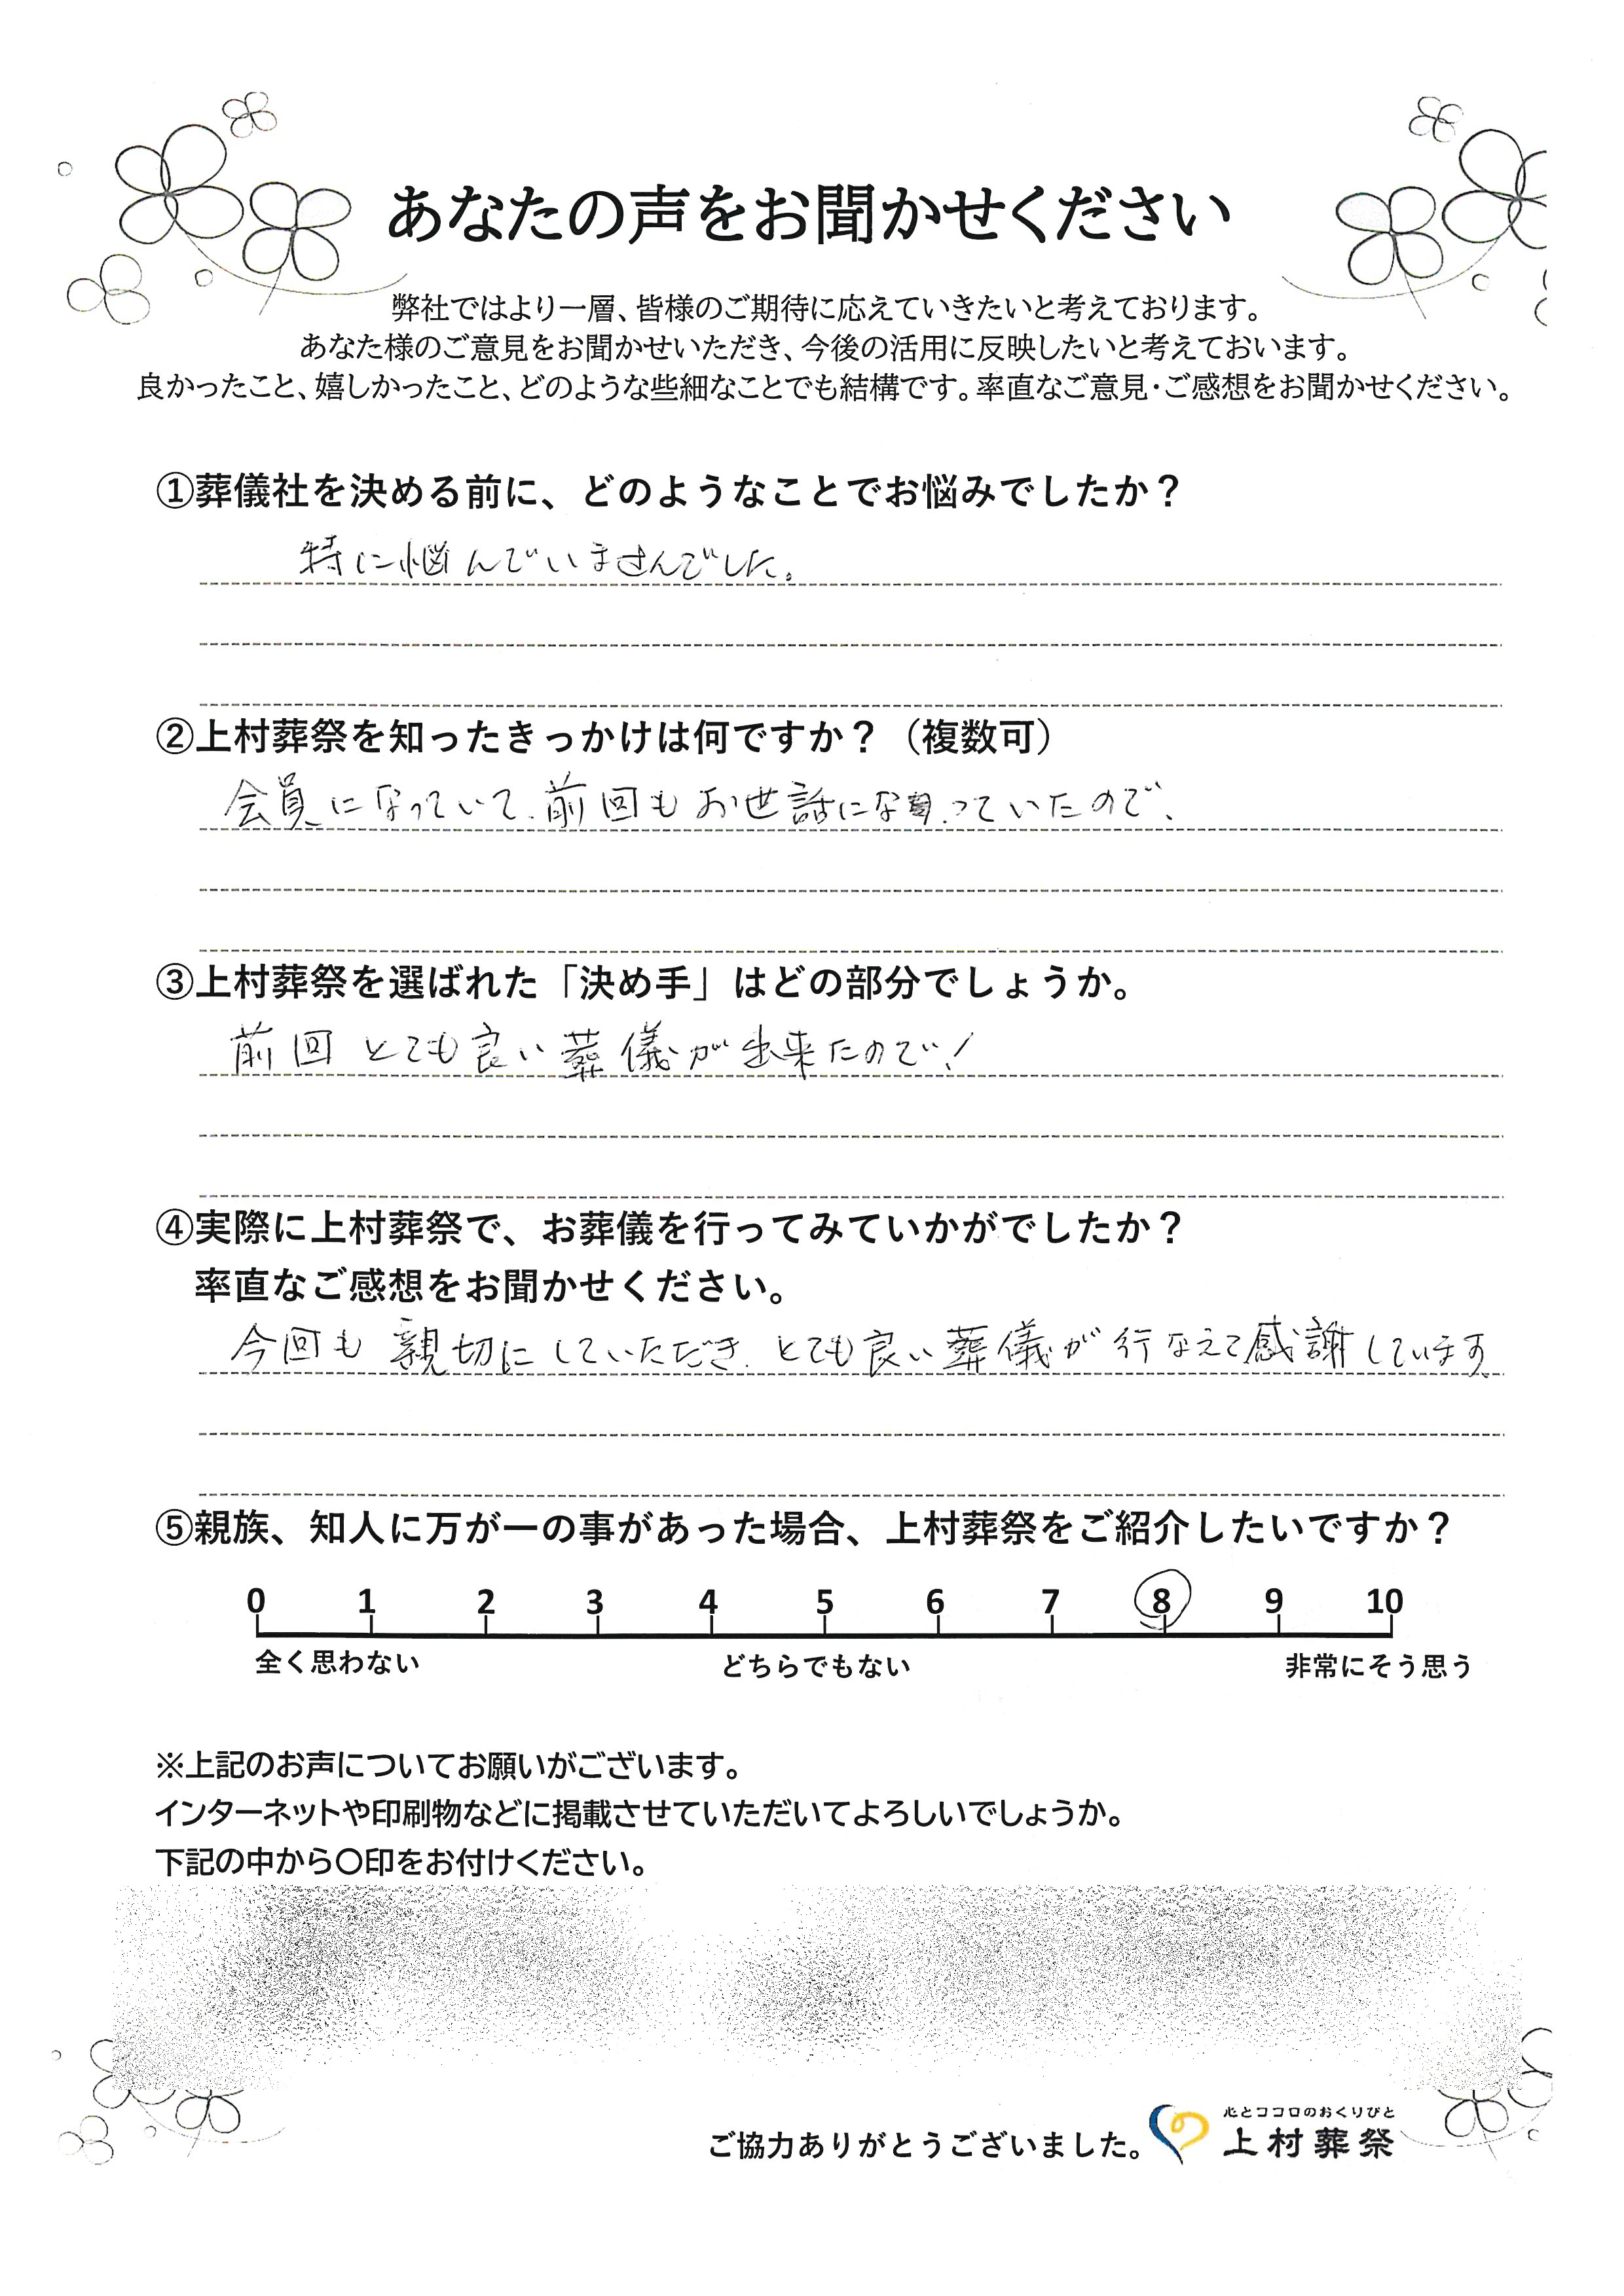 あなたの声をお聞かせください
弊社ではより一層、皆様のご期待に応えていきたいと考えております。
あなた様のご意見をお聞かせいただき、今後の活用に反映したいと考えておいます。
良かったこと、嬉しかったこと、どのような些細なことでも結構です。率直なご意見・ご感想をお聞かせください。
①葬儀社を決める前に、どのようなことでお悩みでしたか？
特に悩んでいませんでした。
②上村葬祭を知ったきっかけは何ですか？（複数可）
会員になっていて、前回もお世話になっていたので、
③上村葬祭を選ばれた「決め手」はどの部分でしょうか。
前回とても良い葬儀が出来たので！
④実際に上村葬祭で、お葬儀を行ってみていかがでしたか？
率直なご感想をお聞かせください。
今回も親切にしていただき、とても良い葬儀が行なえて感謝しています。
⑤親族、知人に万が一の事があった場合、上村葬祭をご紹介したいですか？
0 1 2 3 4 5 6 7 8 9 10
全く思わない どちらでもない 非常にそう思う
※上記のお声についてお願いがございます。
インターネットや印刷物などに掲載させていただいてよろしいでしょうか。
下記の中から〇印をお付けください。
心とココロのおくりびと
ご協力ありがとうございました。 上村葬祭